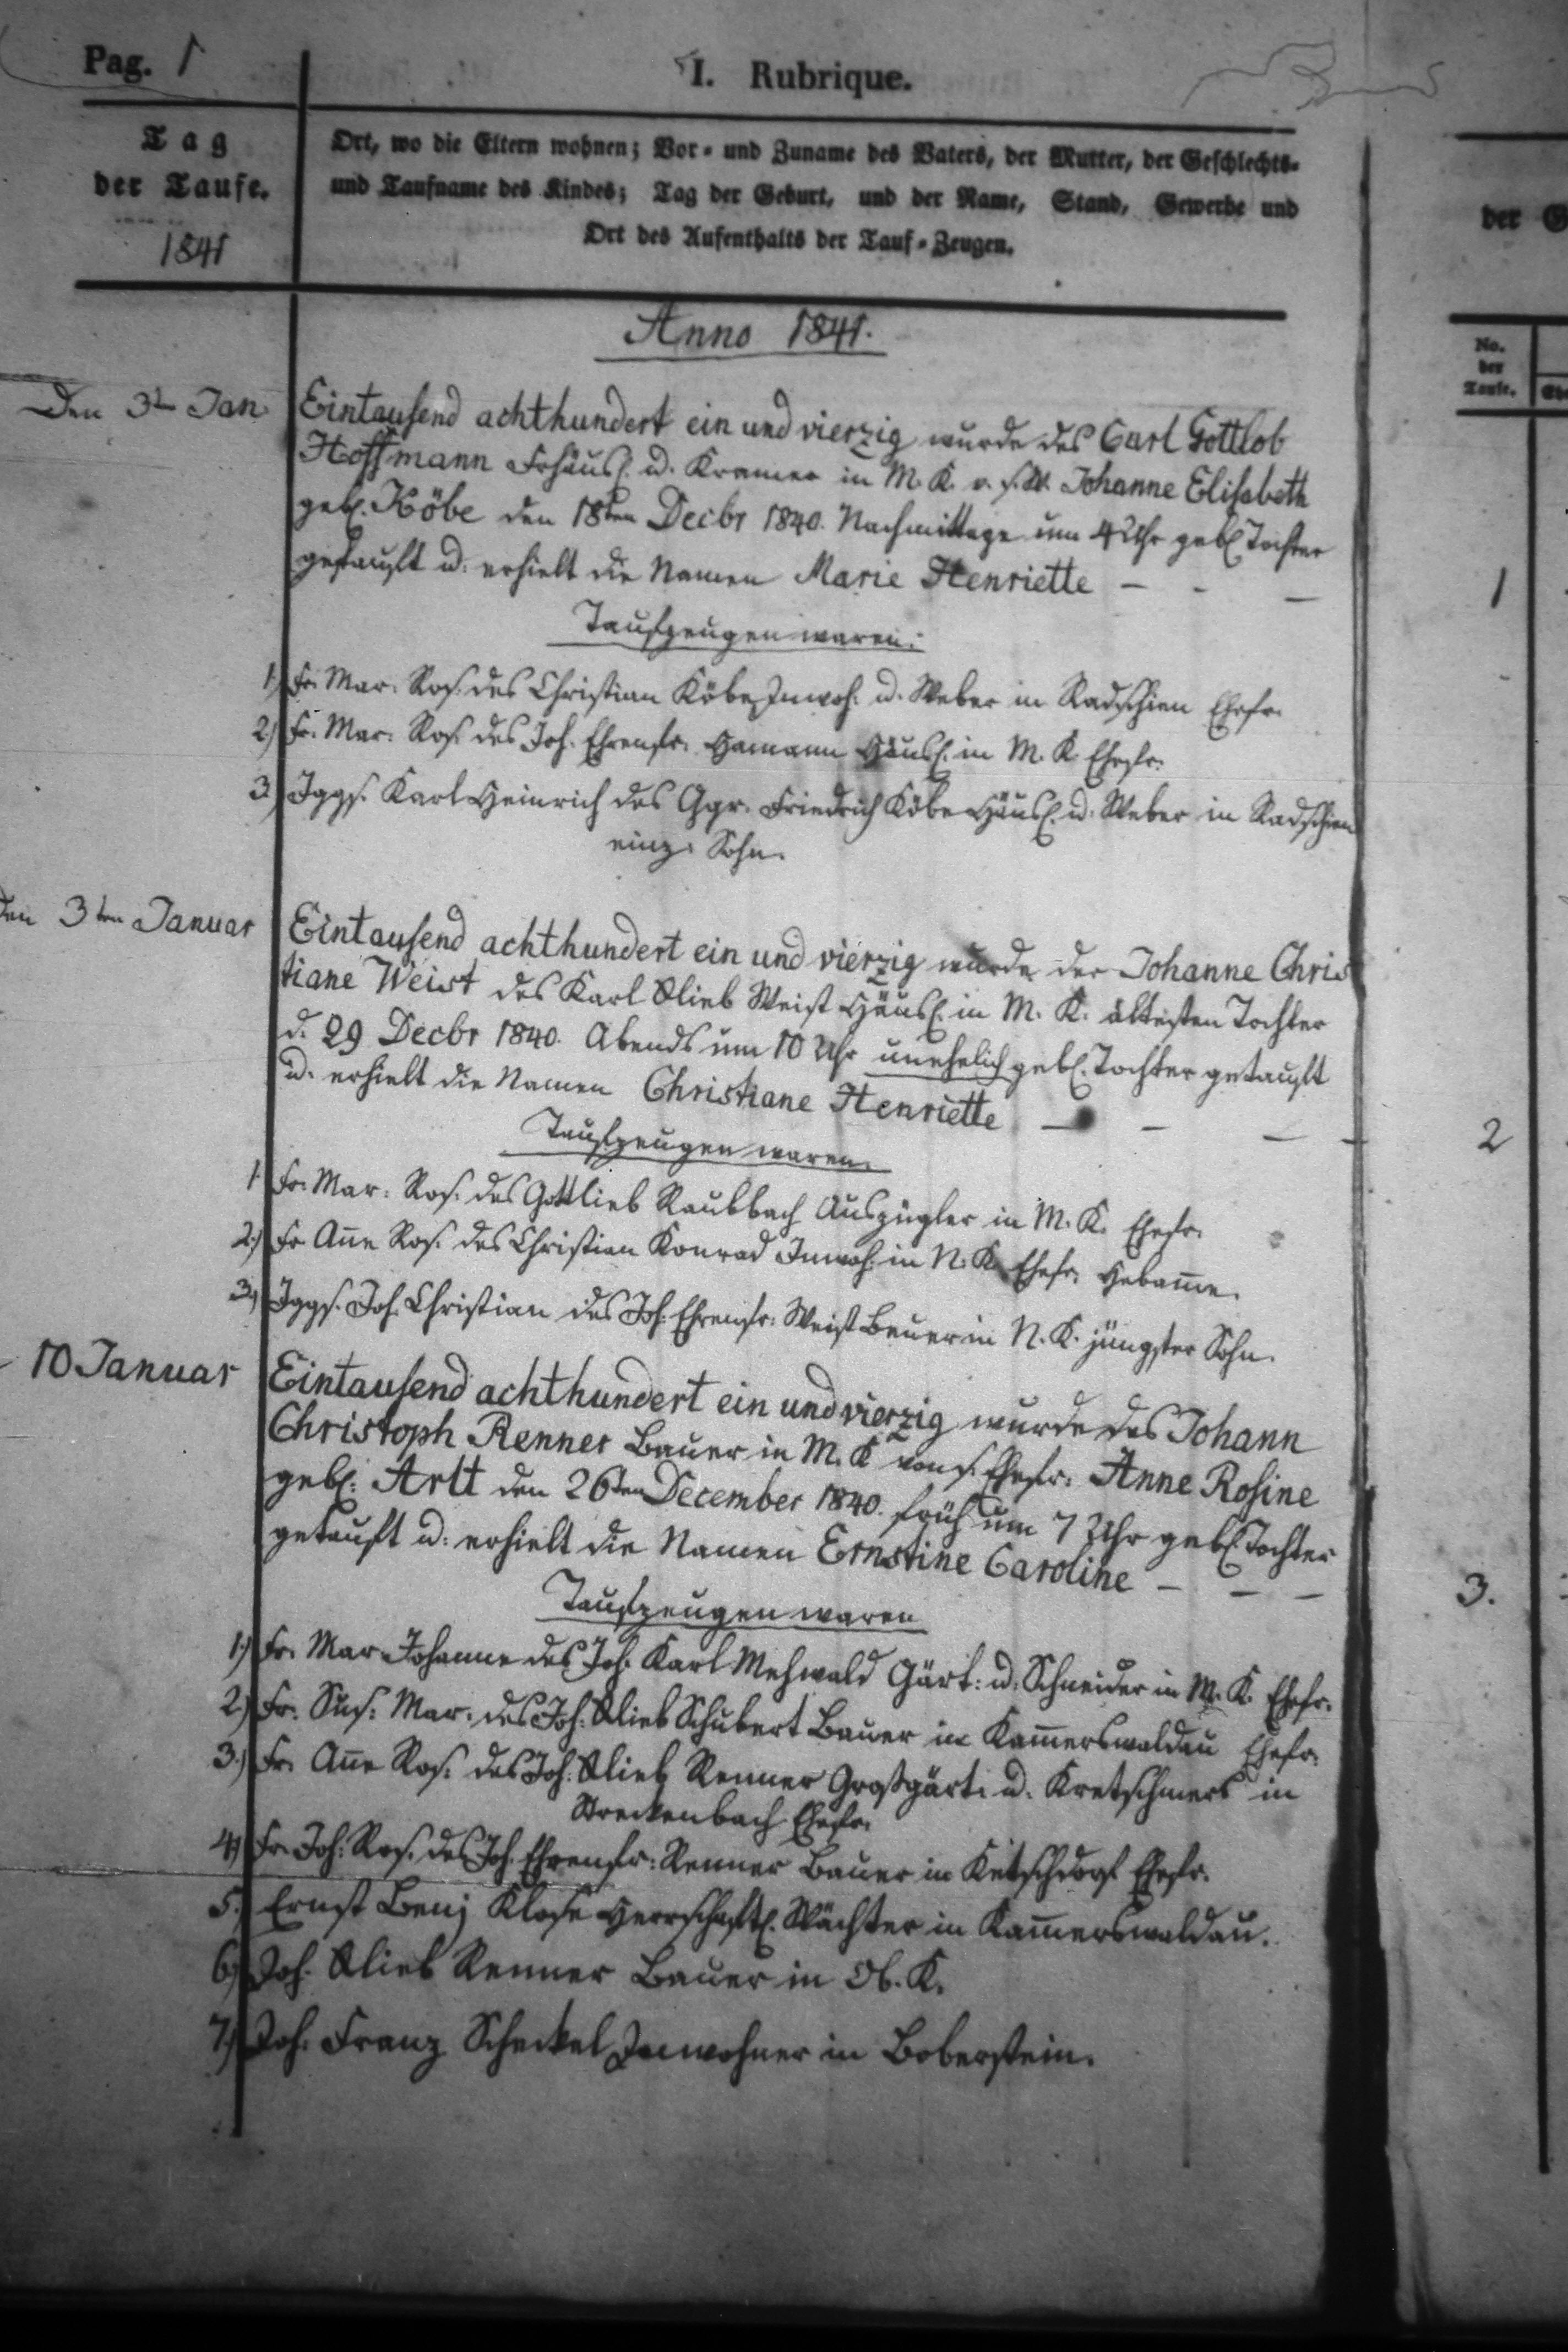 Pag. 1
I. Rubrique.
Tag
der Taufe.
1841
Ort, wo die Eltern wohnen; Vor- und Zuname des Vaters, der Mutter, der Geschlechts-
und Taufname des Kindes; Tag der Geburt, und der Name, Stand, Gewerbe und
Ort des Aufenthalts der Tauf-Zeugen.
Anno 1841.
Den 3ten Jan.
Eintausend achthundert ein und vierzig wurde des Carl Gottlob
Hoffmann Frhäusl. u. Kramer in M. K. v. s. W. Johanne Elisabeth
gebl. Köbe den 18ten Decbr 1840. Nachmittags um 4 Uhr gebl. Tochter
getauft u. erhielt die Namen Marie Henriette — - —
Taufzeugen waren:
1.) Fr. Mar. Ros. des Christian Köbe Inwoh. u. Weber in Radschien Ehefr.
2.) Fr. Mar. Ros. des Joh. Ehrenfr. Hamann Häusl. in M. K. Ehefr.
3.) Iggs. Karl Heinrich des Ggr. Friedrich Köbe Häusl. u. Weber in Radschien
einz. Sohn.
den 3ten Januar
Eintausend achthundert ein und vierzig wurde der Johanne Chris
tiane Weist des Karl Glieb Weist Häusl. in M. K. ältesten Tochter
d. 29 Decbr 1840. Abends um 10 Uhr unehelich gebl. Tochter getauft
u. erhielt die Namen Christiane Henriette — — — —
Taufzeugen waren
1. Fr. Mar. Ros. des Gottlieb Raubbach Auszügler in M. K. Ehefr.
2.) Fr. Anne Ros. des Christian Konrad Inwoh. in N. K. Ehefr. Hebamme.
3.) Iggs. Joh. Christian des Joh. Ehrenfr. Weist Bauer in N. K. jüngster Sohn.
10 Januar
Eintausend achthundert ein und vierzig wurde des Johann
Christoph Renner Bauer in M. K von s. Ehefr. Anne Rosine
gebl. Artt den 26ten December 1840. früh um 7 Uhr gebl. Tochter
getauft u. erhielt die Namen Ernstine Caroline — — —
Taufzeugen waren
1.) Fr. Mar. Johanne des Joh. Karl Mehwald Gärt. u. Schneider in M. K. Ehefr.
2.) Fr. Sus. Mar. des Joh. Glieb Schubert Bauer in Kammerswaldau Ehefr.
3.) Fr. Anne Ros. des Joh. Glieb Renner Großgärt. u. Kretschmers in
Streckenbach Ehefr.
4.) Fr. Joh. Ros. des Joh. Ehrenfr. Renner Bauer in Ketschdorf Ehefr.
5.) Ernst Benj Klose Herrschaftl. Wächter in Kammerswaldau.
6.) Joh. Glieb Renner Bauer in Ob. K.
7.) Joh. Franz Scheckel Inwohner in Boberstein.
der
No.
der
Taufe.
1
2
3.